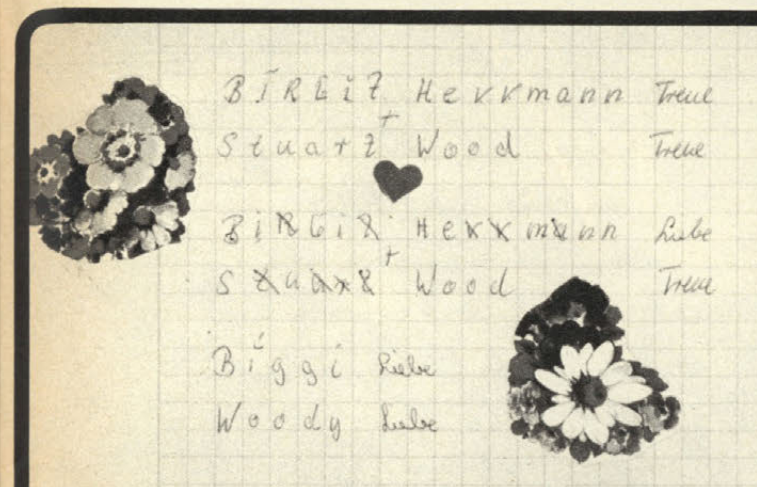 BIRGiT Herrmann Treue
+
Stuart Wood Treue
BiRGiT Herrmann Liebe
+
Stuart Wood Treue
Biggi Liebe
Woody Liebe